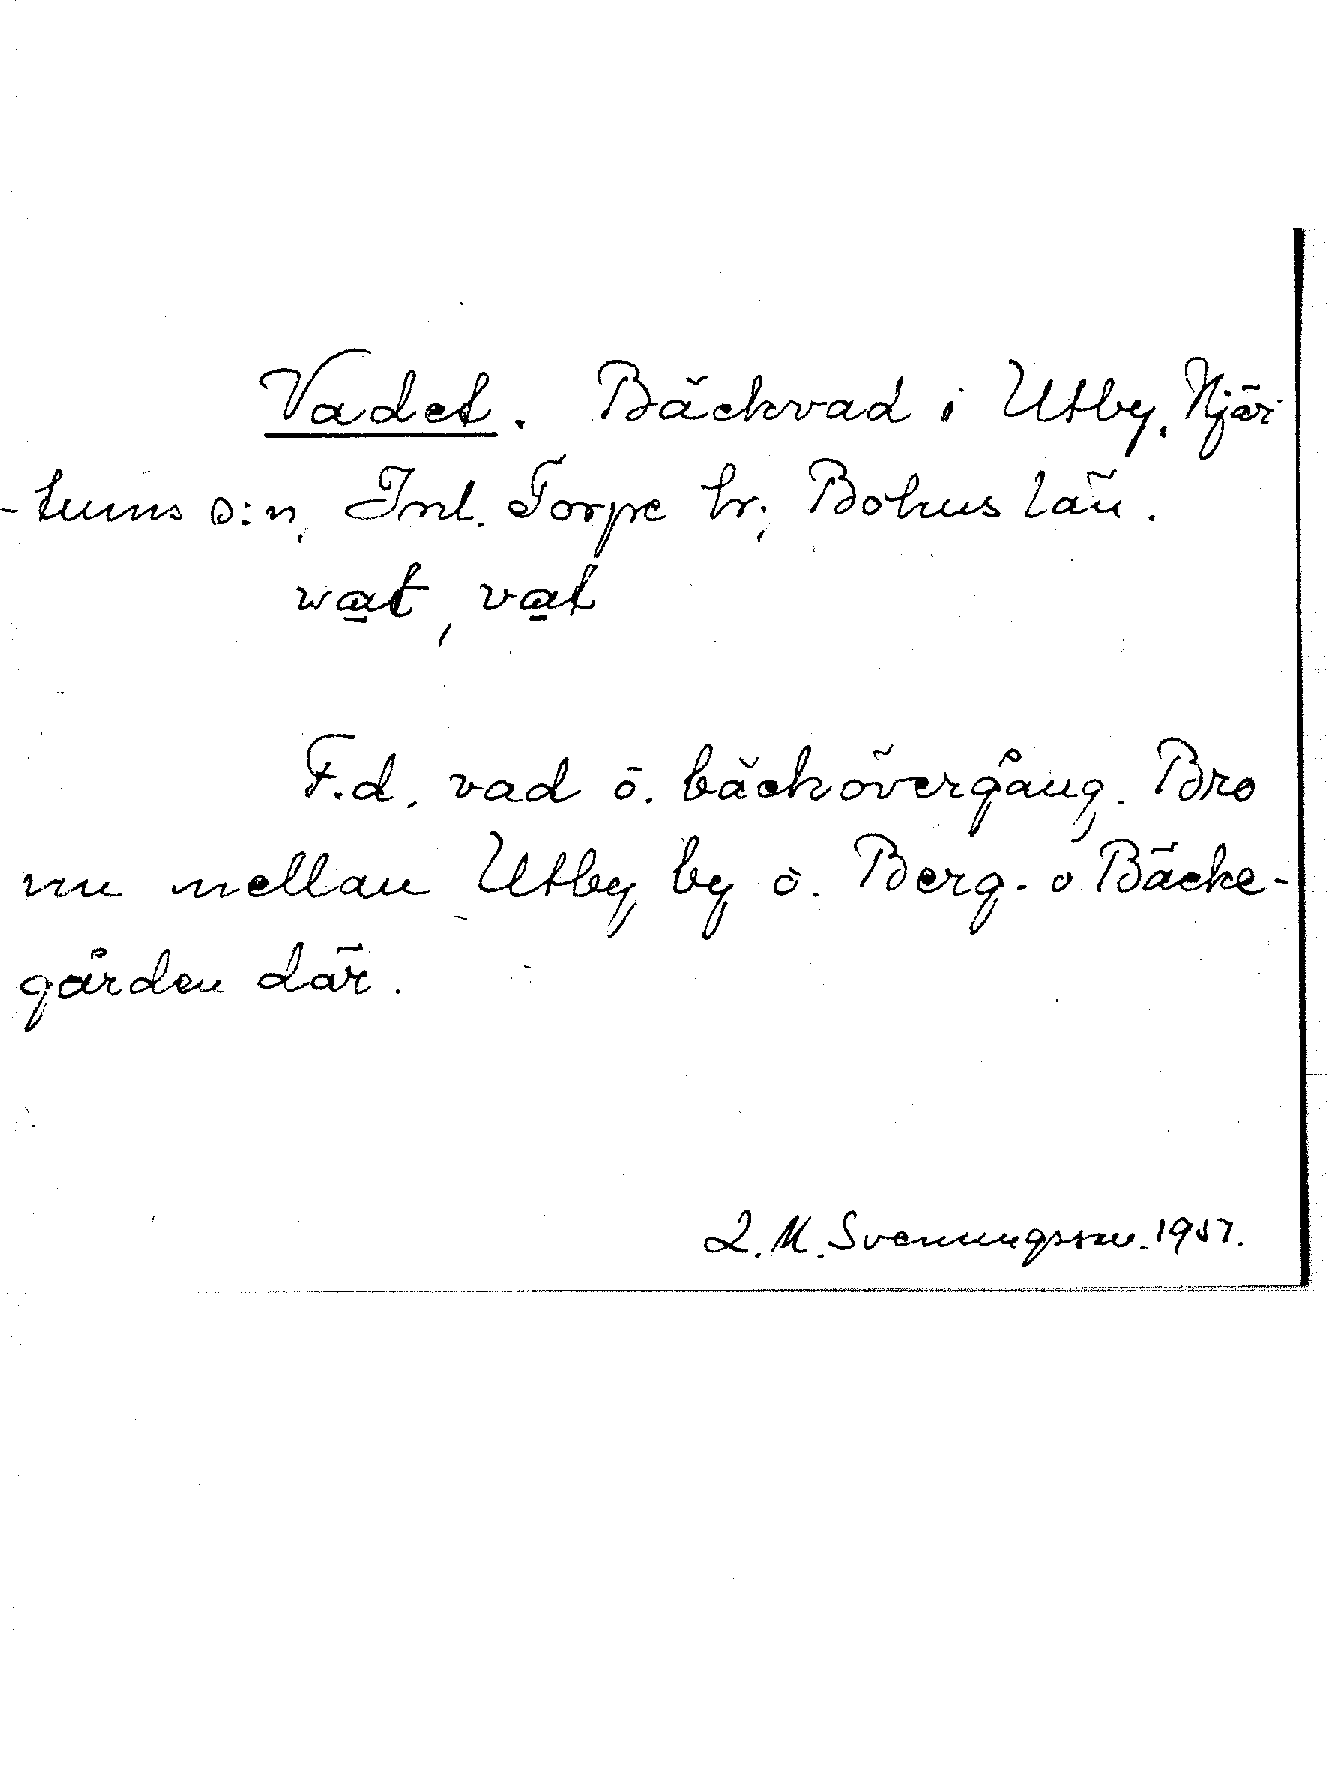 Vadet. Bäckvad i Utby, Hjär
-tums s:n, Inl. Torpe hr; Bohus län.
wat, vat
F.d. vad ö. bäckövergång. Bro
nu mellan Utby by o. Berg- o Bäcke-
gården där.
L. M. Svenungsson. 1957.